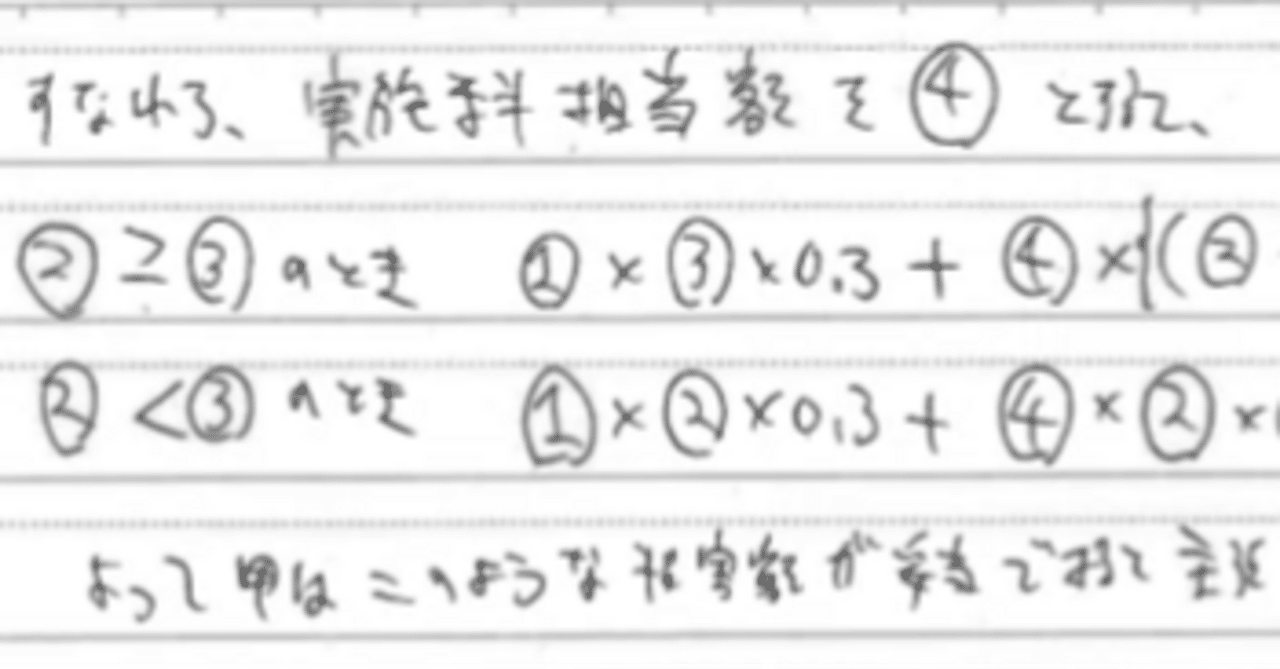 すなわち、実施料相当額を④と称し、
②≥③のとき ①×③×0.3+④×{(②
②<③のとき ①×②×0.3+④×②×
よって甲はこのような損害額が妥当であると主張